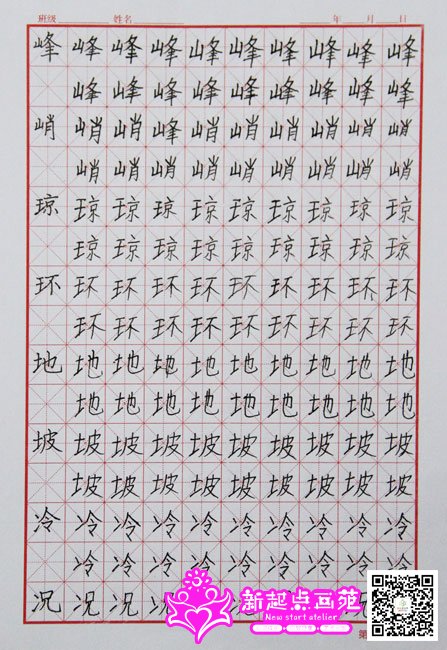 班级 姓名 年 月 日
峰峰峰峰峰峰峰峰峰峰
峰峰峰峰峰峰峰峰峰
峭峭峭峰峭峭峭峭峭峭
峭峭峭峭峭峭峭峭峭
琼琼琼琼琼琼琼琼琼琼
琼琼琼琼琼琼琼琼琼
环环环环环环环环环环
环环环环环环环环环
地地地地地地地地地地
地地地地地地地地地
坡坡坡坡坡坡坡坡坡坡
坡坡坡坡坡坡坡坡坡
冷冷冷冷冷冷冷冷冷冷
冷冷冷冷冷冷冷冷冷
况况况
新起点画苑
New start atelier
第